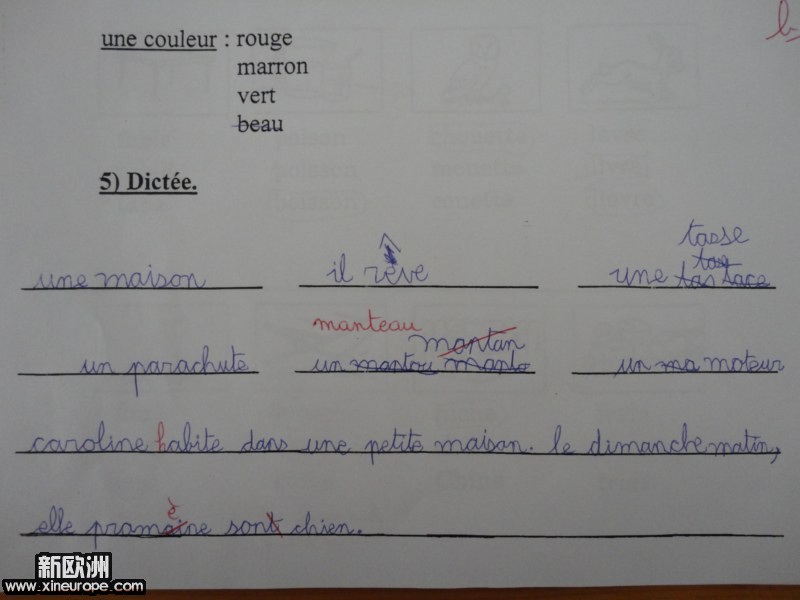 une couleur : rouge
marron
vert
beau
5) Dictée.
tasse
une maison il rêve une tas tace
manteau
mantan
un parachute un mantou manto un ma moteur
caroline habite dans une petite maison. le dimanche matin,
è
elle pramaine sont chien.
新欧洲
www.xineurope.com